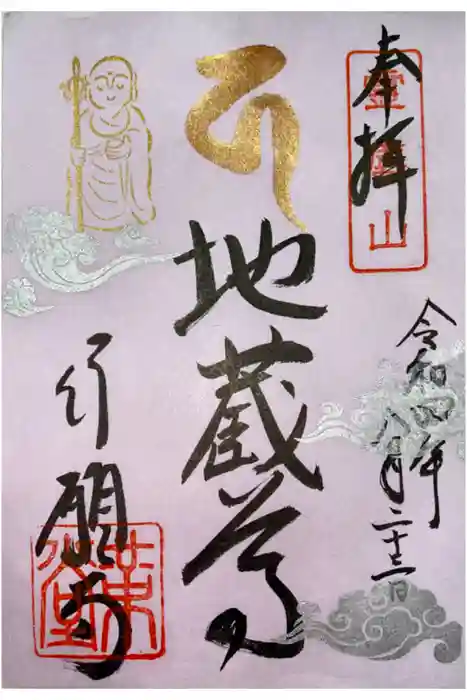 奉拝
令和四年八月二十三日
地蔵尊
行願寺